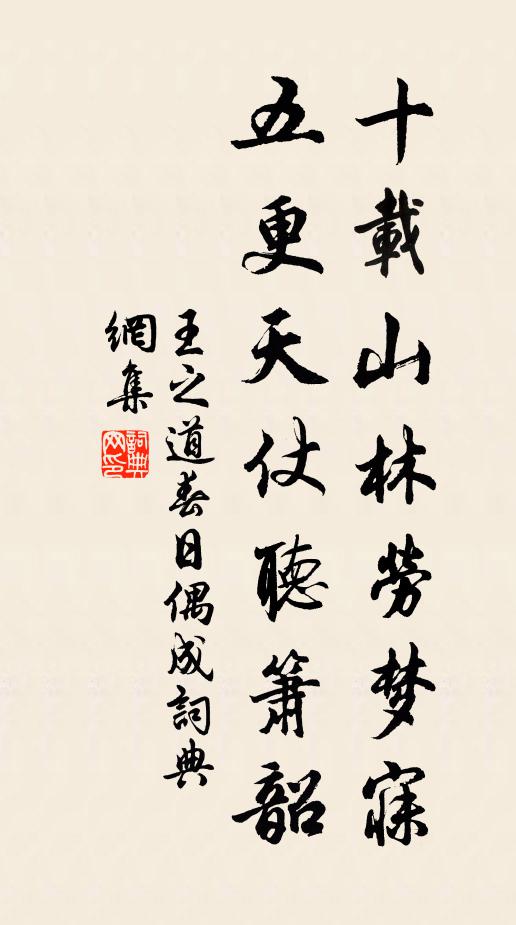 十載山林勞梦寐
五更天仗聽簫韶
王之道春日偶成詞典
網集
詞典
网印